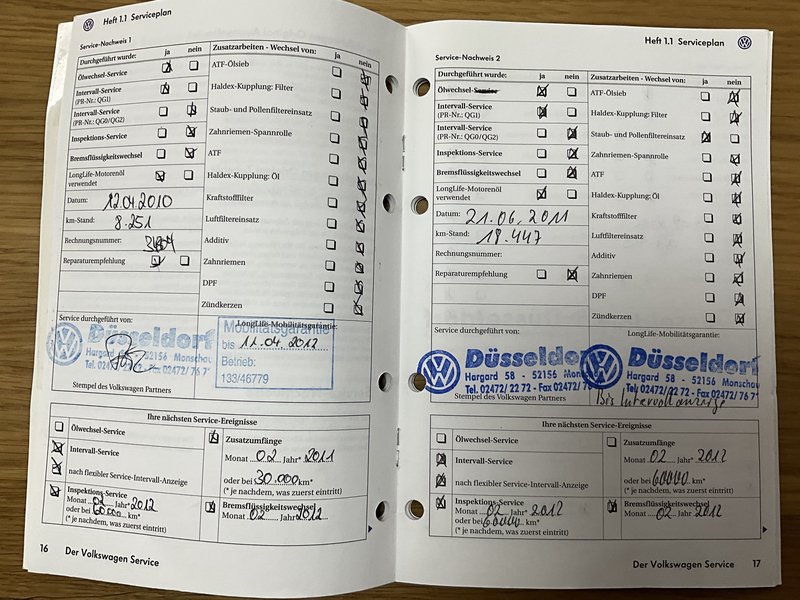 Heft 1.1 Serviceplan
Service-Nachweis 1
Durchgeführt wurde: ja nein
Ölwechsel-Service
Intervall-Service
(PR-Nr.: QG1)
Intervall-Service
(PR-Nr.: QG0/QG2)
Inspektions-Service
Bremsflüssigkeitswechsel
LongLife-Motorenöl
verwendet
Datum: 12.04.2010
km-Stand: 8.251
Rechnungsnummer:
Reparaturempfehlung
Zusatzarbeiten - Wechsel von: ja nein
ATF-Ölsieb
Haldex-Kupplung: Filter
Staub- und Pollenfiltereinsatz
Zahnriemen-Spannrolle
ATF
Haldex-Kupplung: Öl
Kraftstofffilter
Luftfiltereinsatz
Additiv
Zahnriemen
DPF
Zündkerzen
Service durchgeführt von:
Düsseldorf
Hargard 58 - 52156 Monschau
Tel. 02472/22 72 - Fax 02472/76 7
Stempel des Volkswagen Partners
LongLife-Mobilitätsgarantie:
Mobilitätsgarantie
bis 11.04.2012
Betrieb:
133/46779
Ihre nächsten Service-Ereignisse
Ölwechsel-Service
Intervall-Service
nach flexibler Service-Intervall-Anzeige
Inspektions-Service
Monat 02 Jahr* 2012
oder bei 60000 km*
(* je nachdem, was zuerst eintritt)
Zusatzumfänge
Monat 02 Jahr* 2011
oder bei 30.000 km*
(* je nachdem, was zuerst eintritt)
Bremsflüssigkeitswechsel
Monat 02 Jahr 2012
16 Der Volkswagen Service
Heft 1.1 Serviceplan
Service-Nachweis 2
Durchgeführt wurde: ja nein
Ölwechsel-Service
Intervall-Service
(PR-Nr.: QG1)
Intervall-Service
(PR-Nr.: QG0/QG2)
Inspektions-Service
Bremsflüssigkeitswechsel
LongLife-Motorenöl
verwendet
Datum: 21.06.2011
km-Stand: 18.447
Rechnungsnummer:
Reparaturempfehlung
Zusatzarbeiten - Wechsel von: ja nein
ATF-Ölsieb
Haldex-Kupplung: Filter
Staub- und Pollenfiltereinsatz
Zahnriemen-Spannrolle
ATF
Haldex-Kupplung: Öl
Kraftstofffilter
Luftfiltereinsatz
Additiv
Zahnriemen
DPF
Zündkerzen
Service durchgeführt von:
Düsseldorf
Hargard 58 - 52156 Monschau
Tel. 02472/22 72 - Fax 02472/
Stempel des Volkswagen Partners
LongLife-Mobilitätsgarantie:
Düsseldorf
Hargard 58 - 52156 Monschau
Tel. 02472/22 72 - Fax 02472/76 7
Bis Intervallanzeige
Ihre nächsten Service-Ereignisse
Ölwechsel-Service
Intervall-Service
nach flexibler Service-Intervall-Anzeige
Inspektions-Service
Monat 02 Jahr* 2012
oder bei 60000 km*
(* je nachdem, was zuerst eintritt)
Zusatzumfänge
Monat 02 Jahr* 2012
oder bei 60000 km*
(* je nachdem, was zuerst eintritt)
Bremsflüssigkeitswechsel
Monat 02 Jahr 2012
Der Volkswagen Service 17